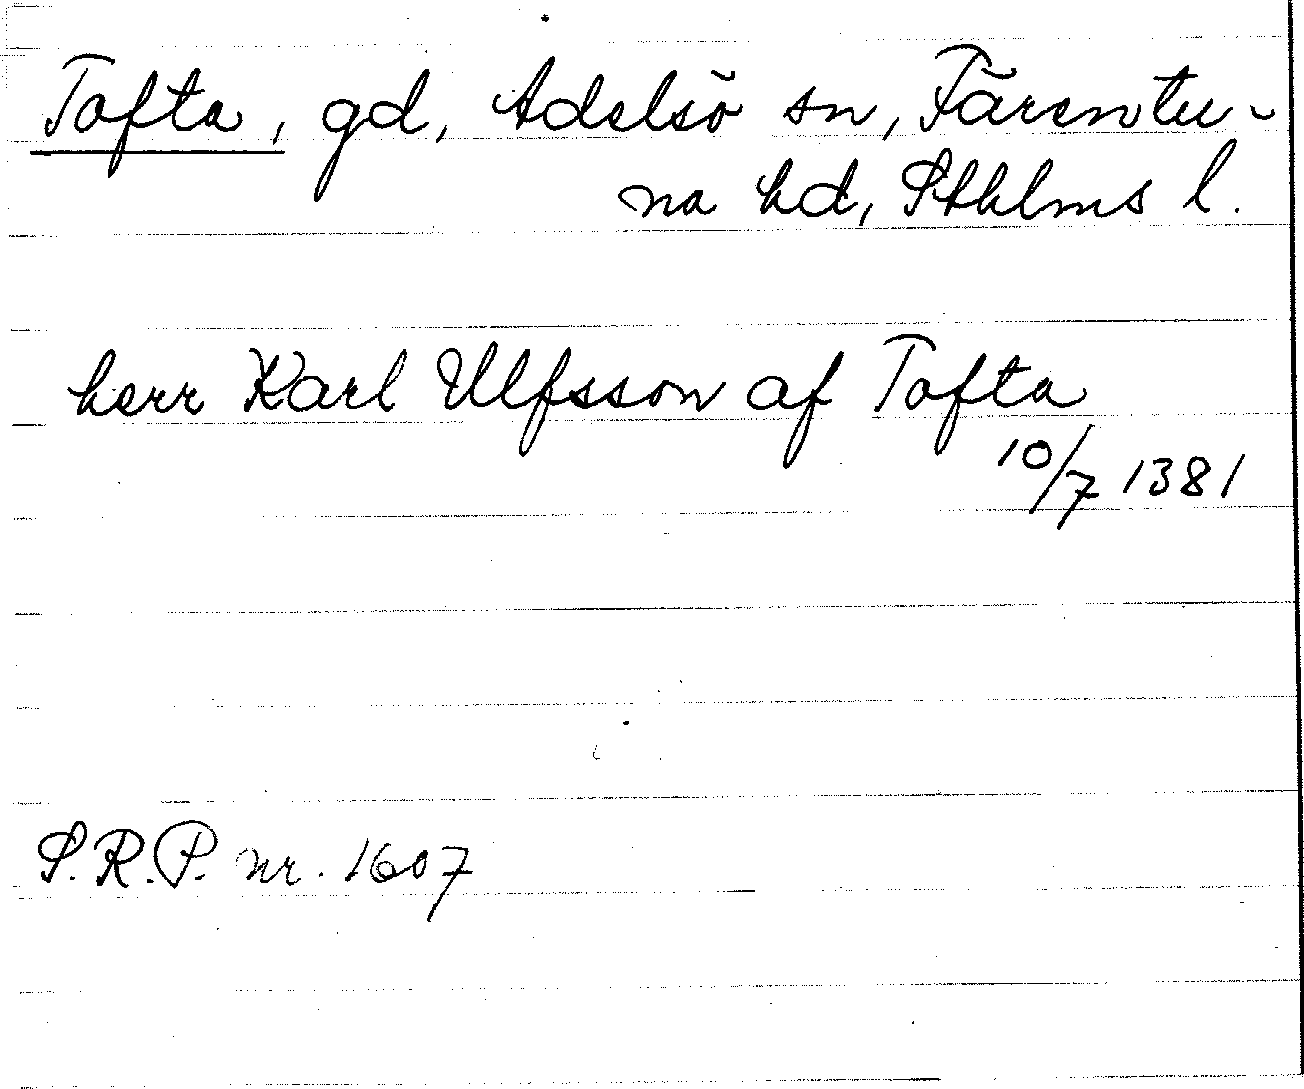 Tofta, gd, Adelsö sn, Färentu-
na hd, Sthlms l.
herr Karl Ulfsson af Tofta
10/7 1381
S.R.P. nr. 1607